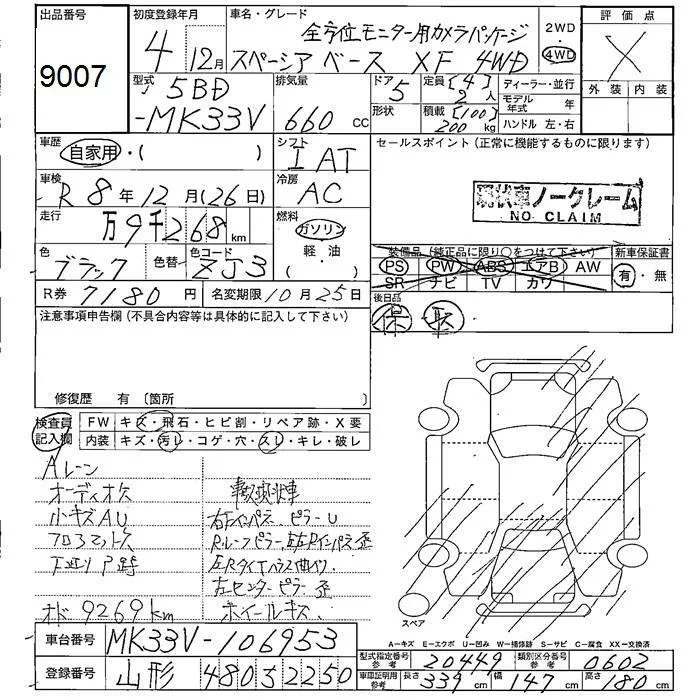 出品番号
9007
初度登録年月
4年12月
車名・グレード
全方位モニター用カメラパッケージ
スペーシア ベース XF 4WD
2WD・4WD
評価点
X
外装 内装
型式
5BD
-MK33V
排気量
660 cc
ドア
5
形状
定員 [4]
2人
積載 [100]
200 kg
ディーラー・並行
モデル年式 年
ハンドル 左・右
車歴
自家用・( )
シフト
I AT
車検
R 8年12月(26日)
冷房
AC
走行
万9千268 km
燃料
ガソリン
軽・油
・( )
色
ブラック
色替
色コード
ZJ3
R券 7180円
名変期限 10月25日
セールスポイント(正常に機能するものに限ります)
現状車ノークレーム
NO CLAIM
装備品(純正品に限り○をつけて下さい)
PS PW ABS エアB AW
SR ナビ TV カワ
新車保証書
有・無
後日品
保 取
注意事項申告欄(不具合内容等は具体的に記入して下さい)
修復歴 有 〔箇所 〕
検査員記入欄
FW キズ・飛石・ヒビ割・リペア跡・X要
内装 キズ・汚レ・コゲ・穴・スレ・キレ・破レ
Aレーン
オーディオ欠
事故現状車
小キズAU
右Fインパネ、ピラーU
フロアマット欠
下廻りP錆
左センターピラー歪
オド 9269km
ホイールキズ
スペア
A-キズ E-エクボ U-凹み W-補修跡 S-サビ C-腐食 XX-交換済
車台番号 MK33V-106953
登録番号 山形 480 う 2250
型式指定番号 参考 20449
類別区分番号 参考 0602
車庫証明用 参考 長さ 339 cm 幅 147 cm 高さ 180 cm